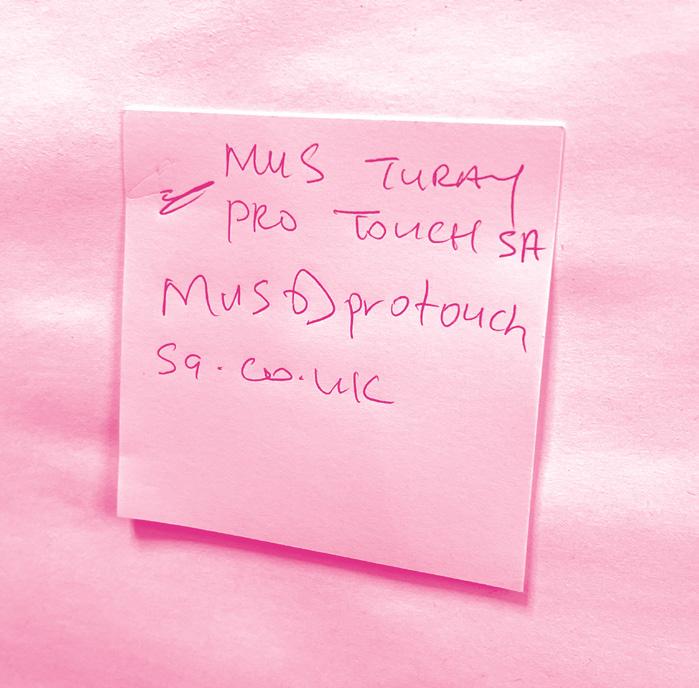 MUS TURAY
PRO TOUCH SA
Mus@protouch
sa.co.uk